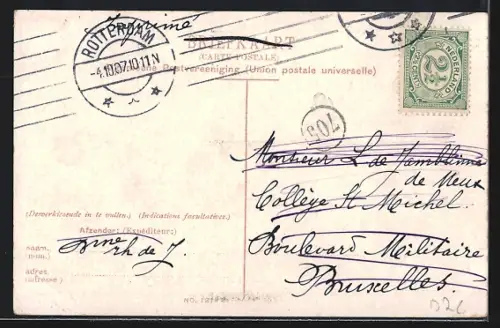 Imprimé
BRIEFKAART
(CARTE POSTALE)
Postvereeniging (Union postale universelle)
ROTTERDAM
-4.10.07.10-11 N
NEDERLAND
2½
705
Monsieur L de
de Meux
Collège St Michel
Boulevard Militaire
Bruxelles.
(Desverkiezende in te vullen.) (Indications facultatives.)
Afzender: (Expéditeur:)
naam,
(nom:)
adres,
(adresse:)
rh de J.
NO.
D26